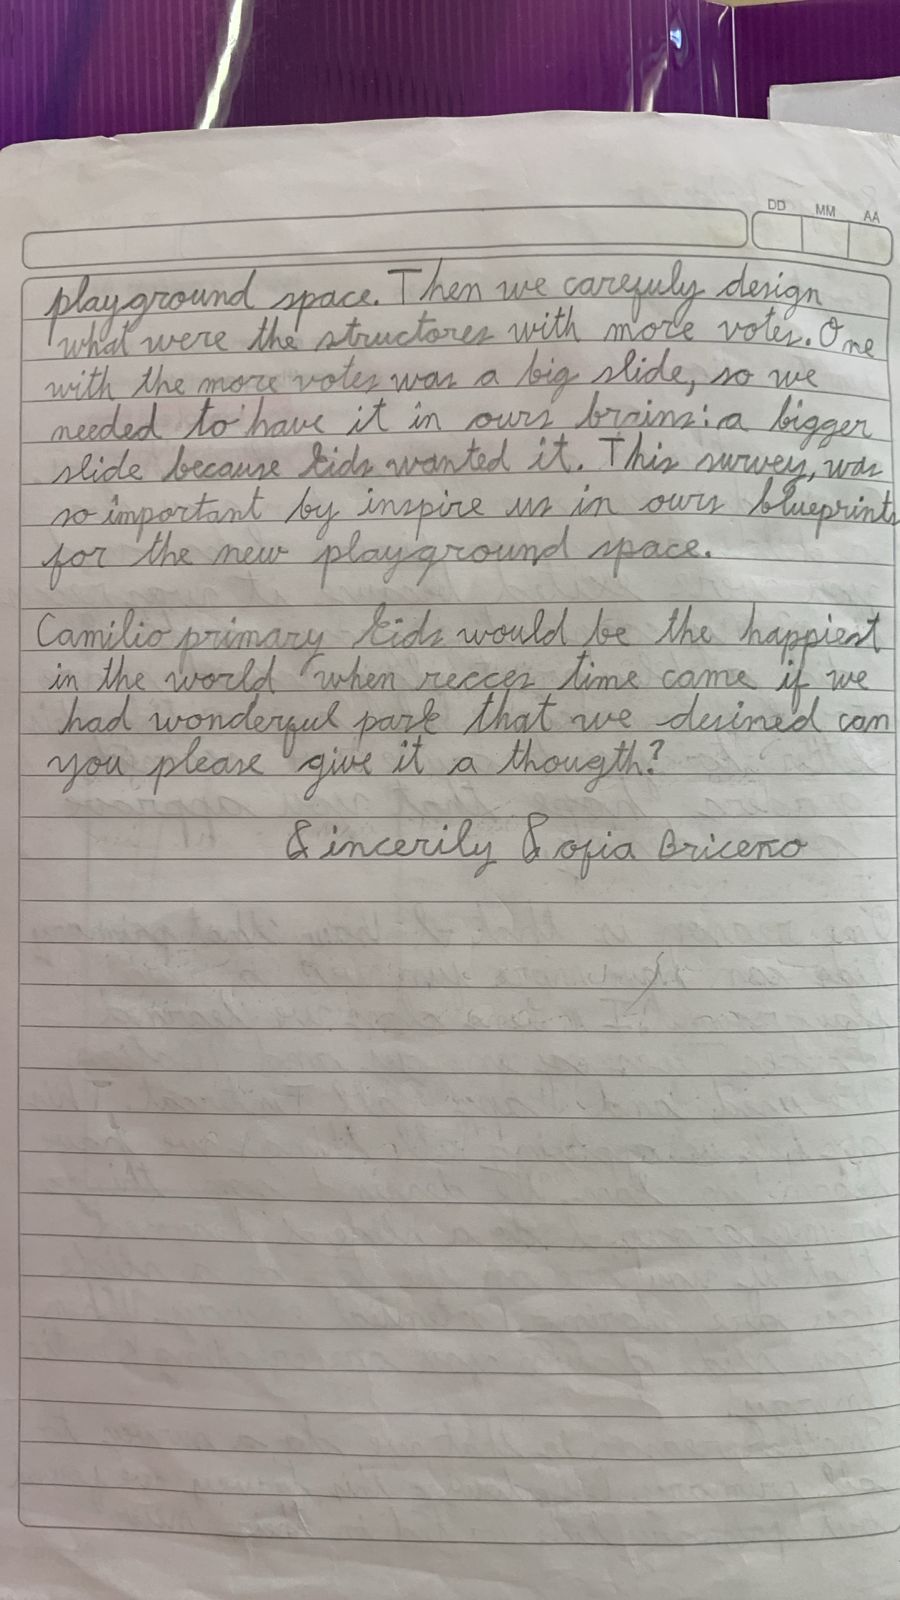 DD MM AA
playground space. Then we carefuly design
what were the structores with more votes. One
with the more votes was a big slide, so we
needed to have it in ours brains: a bigger
slide because kids wanted it. This survey, was
so important by inspire us in ours blueprints
for the new playground space.
Camilio primary kids would be the happiest
in the world when recces time came if we
had wonderful park that we desined can
you please give it a thougth?
Sincerily Sofia Briceño